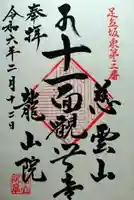 足立坂東第三番
慈雲山
十一面観世音
龍山院
奉拝
令和六年二月十二日